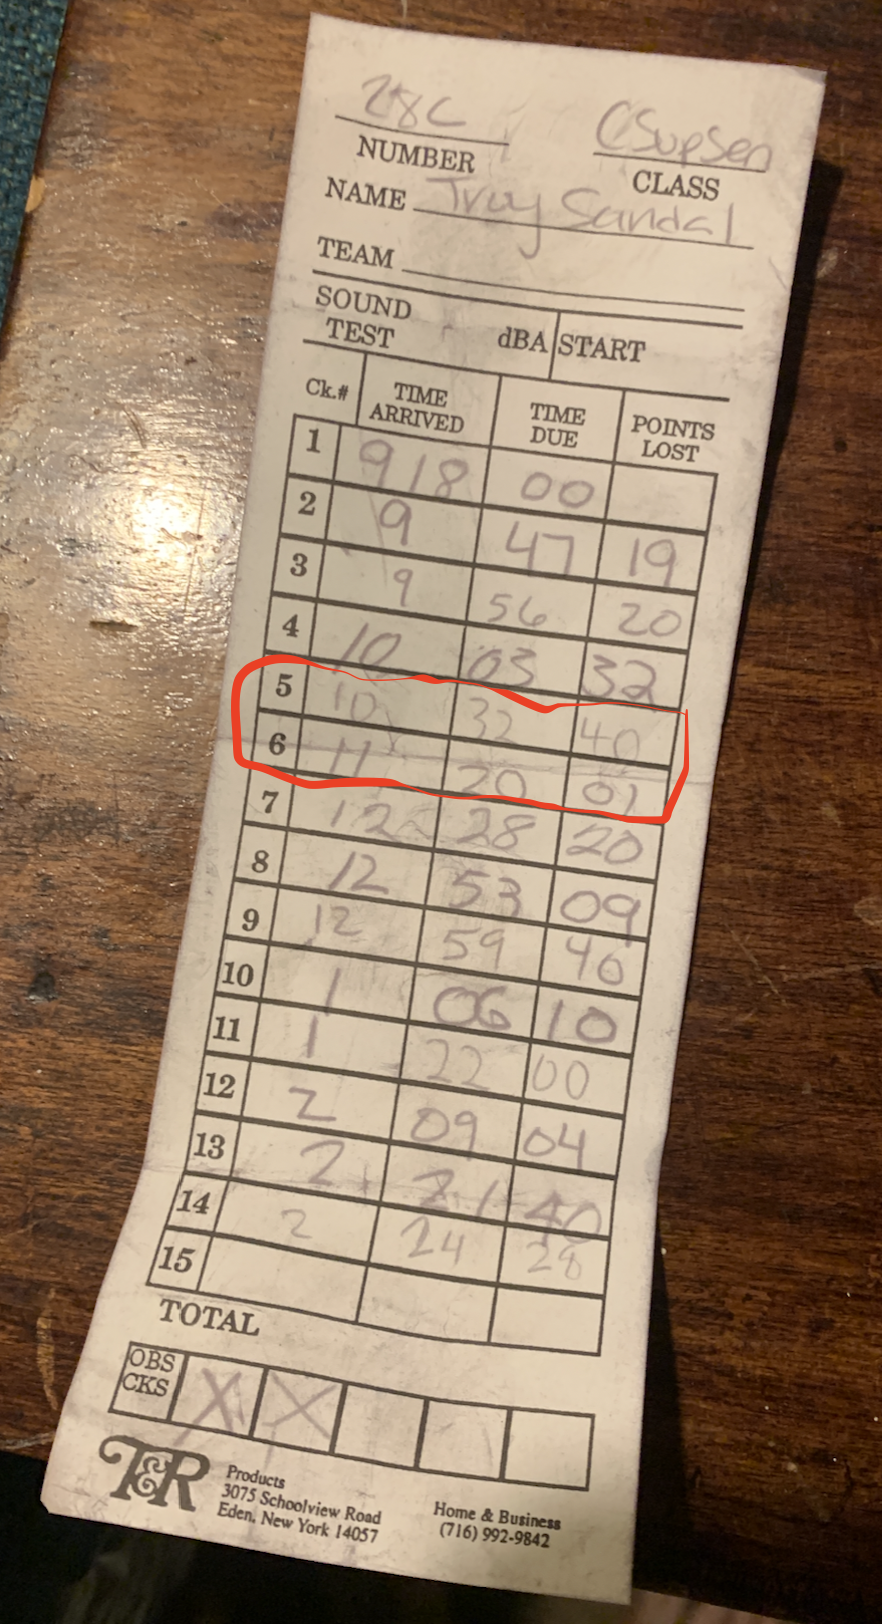 28C CSupSen
NUMBER CLASS
NAME Troy Sandal
TEAM
SOUND TEST dBA START
Ck.# TIME ARRIVED TIME DUE POINTS LOST
1 918 00
2 9 47 19
3 9 56 20
4 10 03 32
5 10 32 40
6 11 20 01
7 12 28 20
8 12 53 09
9 12 59 40
10 1 06 10
11 1 22 00
12 2 09 04
13 2 21 40
14 2 24 28
15
TOTAL
OBS CKS X X
T&R Products
3075 Schoolview Road
Eden, New York 14057
Home & Business
(716) 992-9842